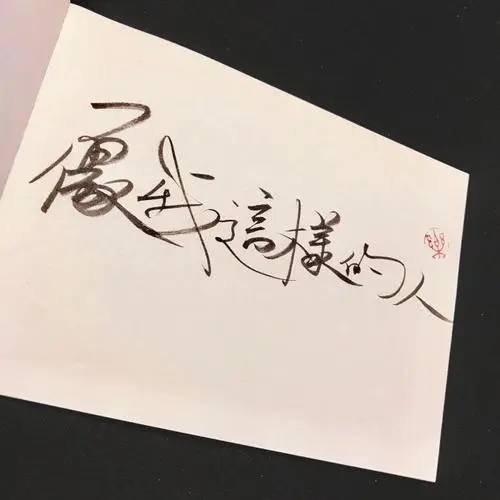 像我這樣的人